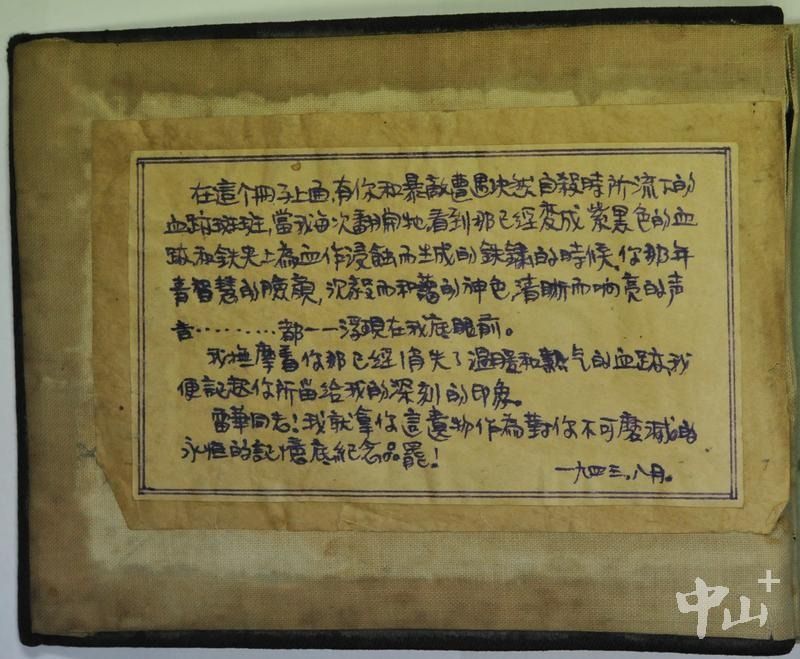 在這個冊子上面,有你和暴敵遭遇决然自殺時所流下的
血跡斑斑,當我每次翻開牠看到那已經变成紫黑色的血
跡和鉄夾上為血作浸蝕而生成的銕銹的時候,你那年
青智慧的臉龐,沉毅而和藹的神色,清晰而响亮的声
音………都一一浮現在我底眼前。
我撫摩着你那已經消失了溫暖和熱气的血跡,我
便記起你所留給我的深刻的印象。
雷華同志!我就拿你這遺物作為對你不可磨滅的
永恒的記憶底紀念品罷!
一九四三.八月。
中山+